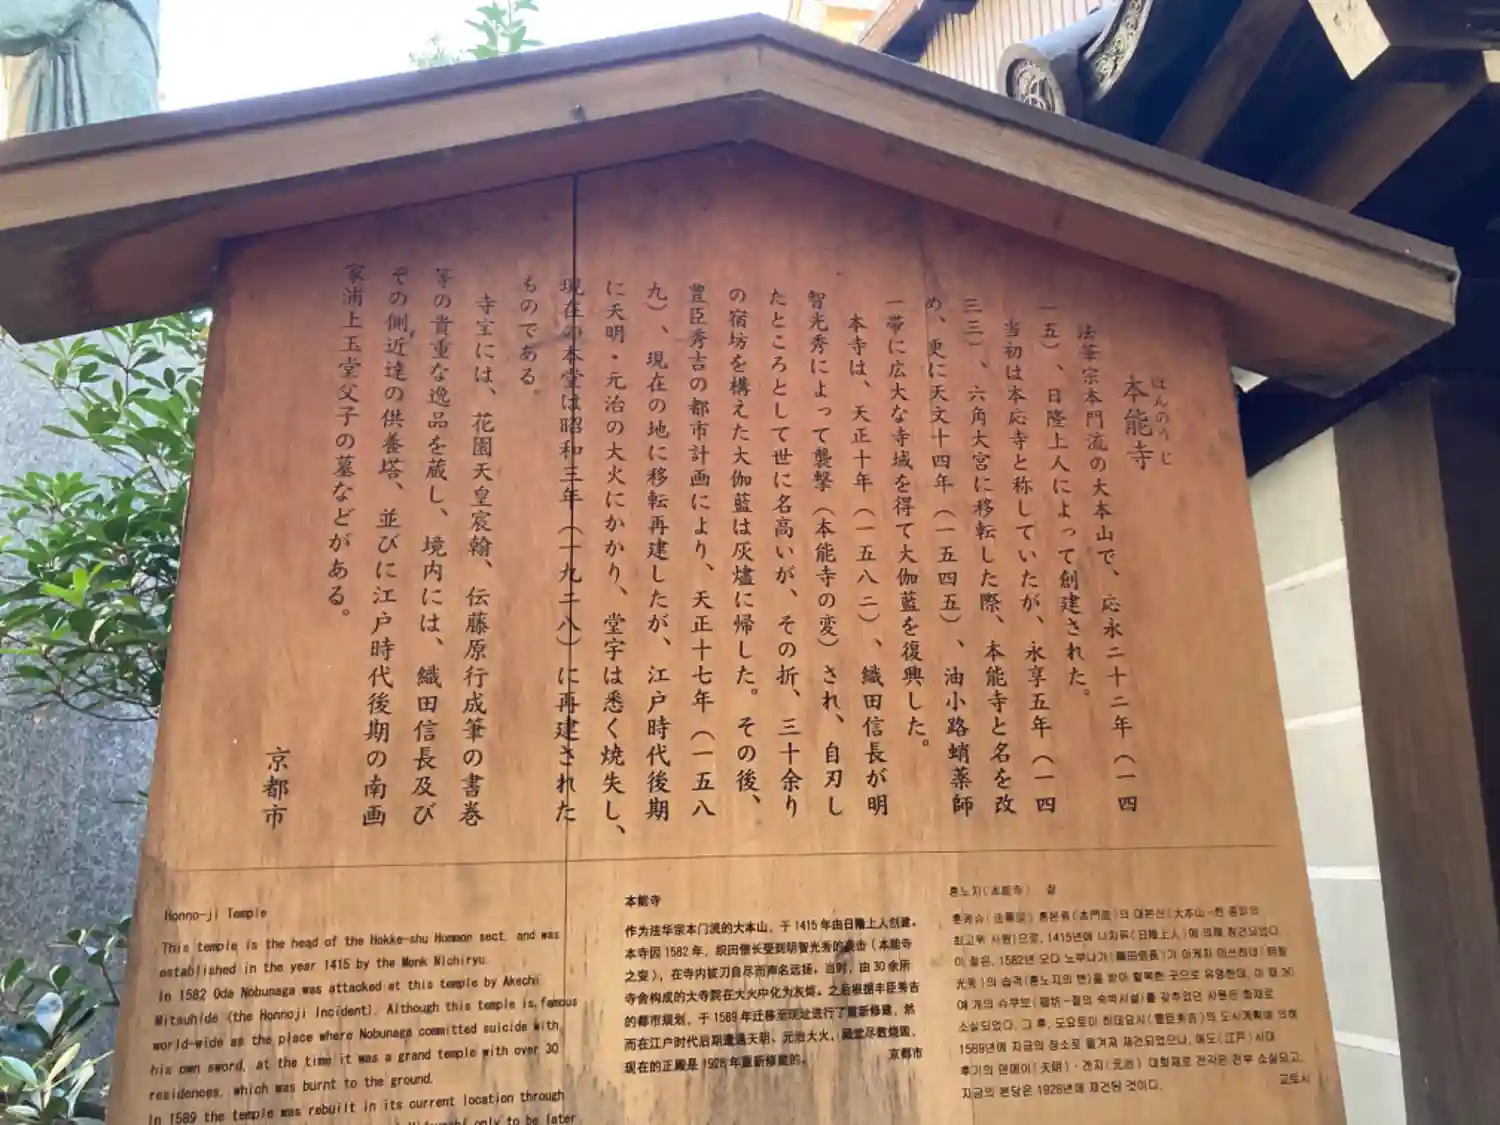 ほんのうじ
本能寺
法華宗本門流の大本山で、応永二十二年（一四
一五）、日隆上人によって創建された。
当初は本応寺と称していたが、永享五年（一四
三三）、六角大宮に移転した際、本能寺と名を改
め、更に天文十四年（一五四五）、油小路蛸薬師
一帯に広大な寺域を得て大伽藍を復興した。
本寺は、天正十年（一五八二）、織田信長が明
智光秀によって襲撃（本能寺の変）され、自刃し
たところとして世に名高いが、その折、三十余り
の宿坊を構えた大伽藍は灰燼に帰した。その後、
豊臣秀吉の都市計画により、天正十七年（一五八
九）、現在の地に移転再建したが、江戸時代後期
に天明・元治の大火にかかり、堂宇は悉く焼失し、
現在の本堂は昭和三年（一九二八）に再建された
ものである。
寺宝には、花園天皇宸翰、伝藤原行成筆の書巻
等の貴重な逸品を蔵し、境内には、織田信長及び
その側近達の供養塔、並びに江戸時代後期の南画
家浦上玉堂父子の墓などがある。
京都市
Honno-ji Temple
This temple is the head of the Hokke-shu Honmon sect, and was
established in the year 1415 by the Monk Nichiryu.
In 1582 Oda Nobunaga was attacked at this temple by Akechi
Mitsuhide (the Honnoji Incident). Although this temple is famous
world-wide as the place where Nobunaga committed suicide with
his own sword, at the time it was a grand temple with over 30
residences, which was burnt to the ground.
In 1589 the temple was rebuilt in its current location through
only to be later
本能寺
作为法华宗本门流的大本山，于1415年由日隆上人创建。
本寺因1582年，织田信长受到明智光秀的袭击（本能寺
之变），在寺内被刀自尽而声名远扬。当时，由30余所
寺舍构成的大寺院在大火中化为灰烬。之后根据丰臣秀吉
的都市规划，于1589年迁移至现址进行了重新修建，然
而在江户时代后期遭遇天明、元治大火，殿堂尽数烧毁，
现在的正殿是1928年重新修建的。
京都市
혼노지(本能寺) 절
홋케슈(法華宗) 혼몬류(本門流)의 대본산(大本山-한 종파의
최고위 사원)으로, 1415년에 니치류(日隆上人)에 의해 창건되었다.
이 절은, 1582년 오다 노부나가(織田信長)가 아케치 미쓰히데(明智
光秀)의 습격(혼노지의 변)을 받아 할복한 곳으로 유명한데, 이 때 30
여 개의 슈쿠보(宿坊-절의 숙박시설)를 갖추었던 사원은 화재로
소실되었다. 그 후, 도요토미 히데요시(豊臣秀吉)의 도시계획에 의해
1589년에 지금의 장소로 옮겨져 재건되었으나, 에도(江戸)시대
후기의 덴메이(天明)·겐지(元治) 대화재로 전각은 전부 소실되고,
지금의 본당은 1928년에 재건된 것이다.
교토시